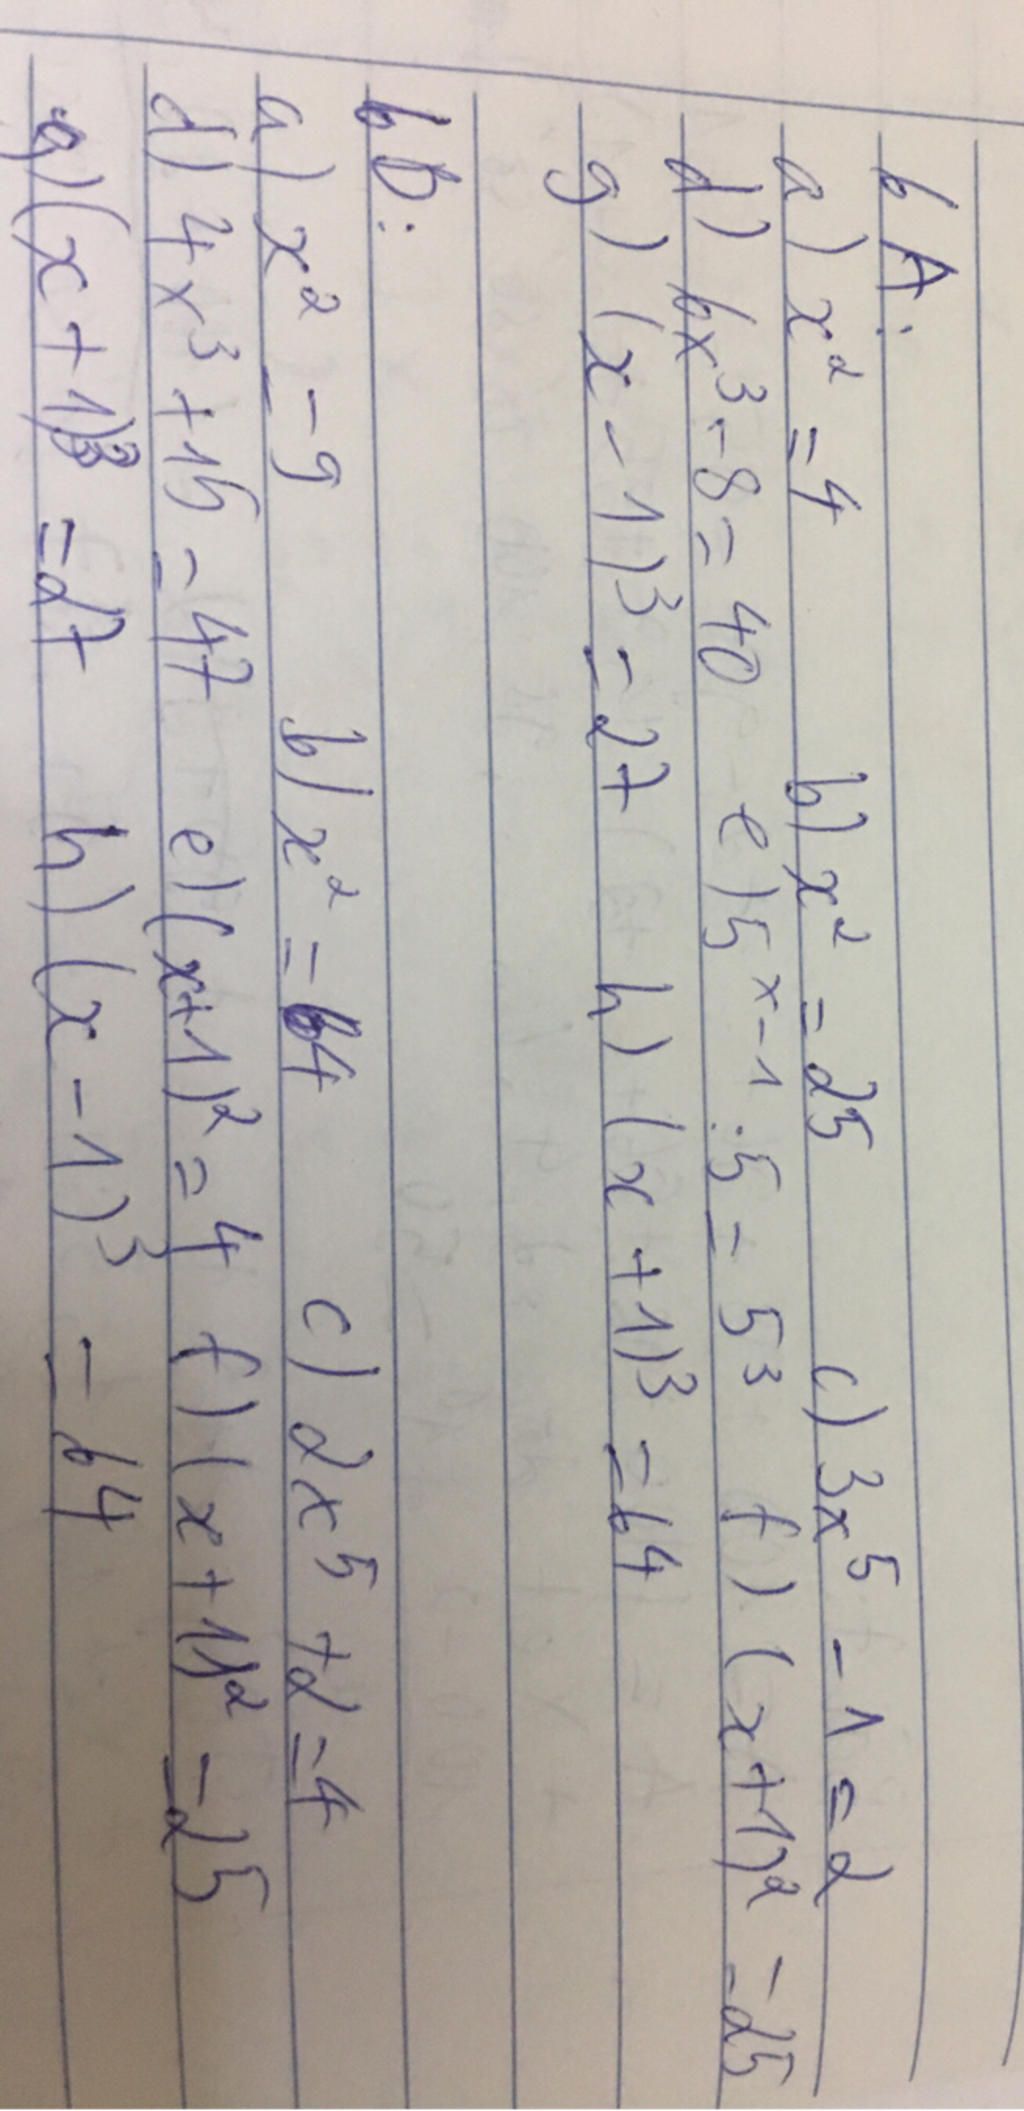 6A:
a) x² = 4 b) x² = 25 c) 3x⁵ - 1 = 2
d) 6x³ - 8 = 40 e) 5ˣ⁻¹ : 5 = 5³ f) (x + 1)² = 25
g) (x - 1)³ = 27 h) (x + 1)³ = 64
6D:
a) x² = 9 b) x² = 64 c) 2x⁵ + 2 = 4
d) 4x³ + 15 = 47 e) (x+1)² = 4 f) (x + 1)² = 25
g) (x + 1)³ = 27 h) (x - 1)³ = 64